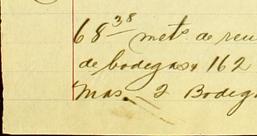 68 38 mets. de reu
de bodegas, 162
Mas - 2 Bodeg